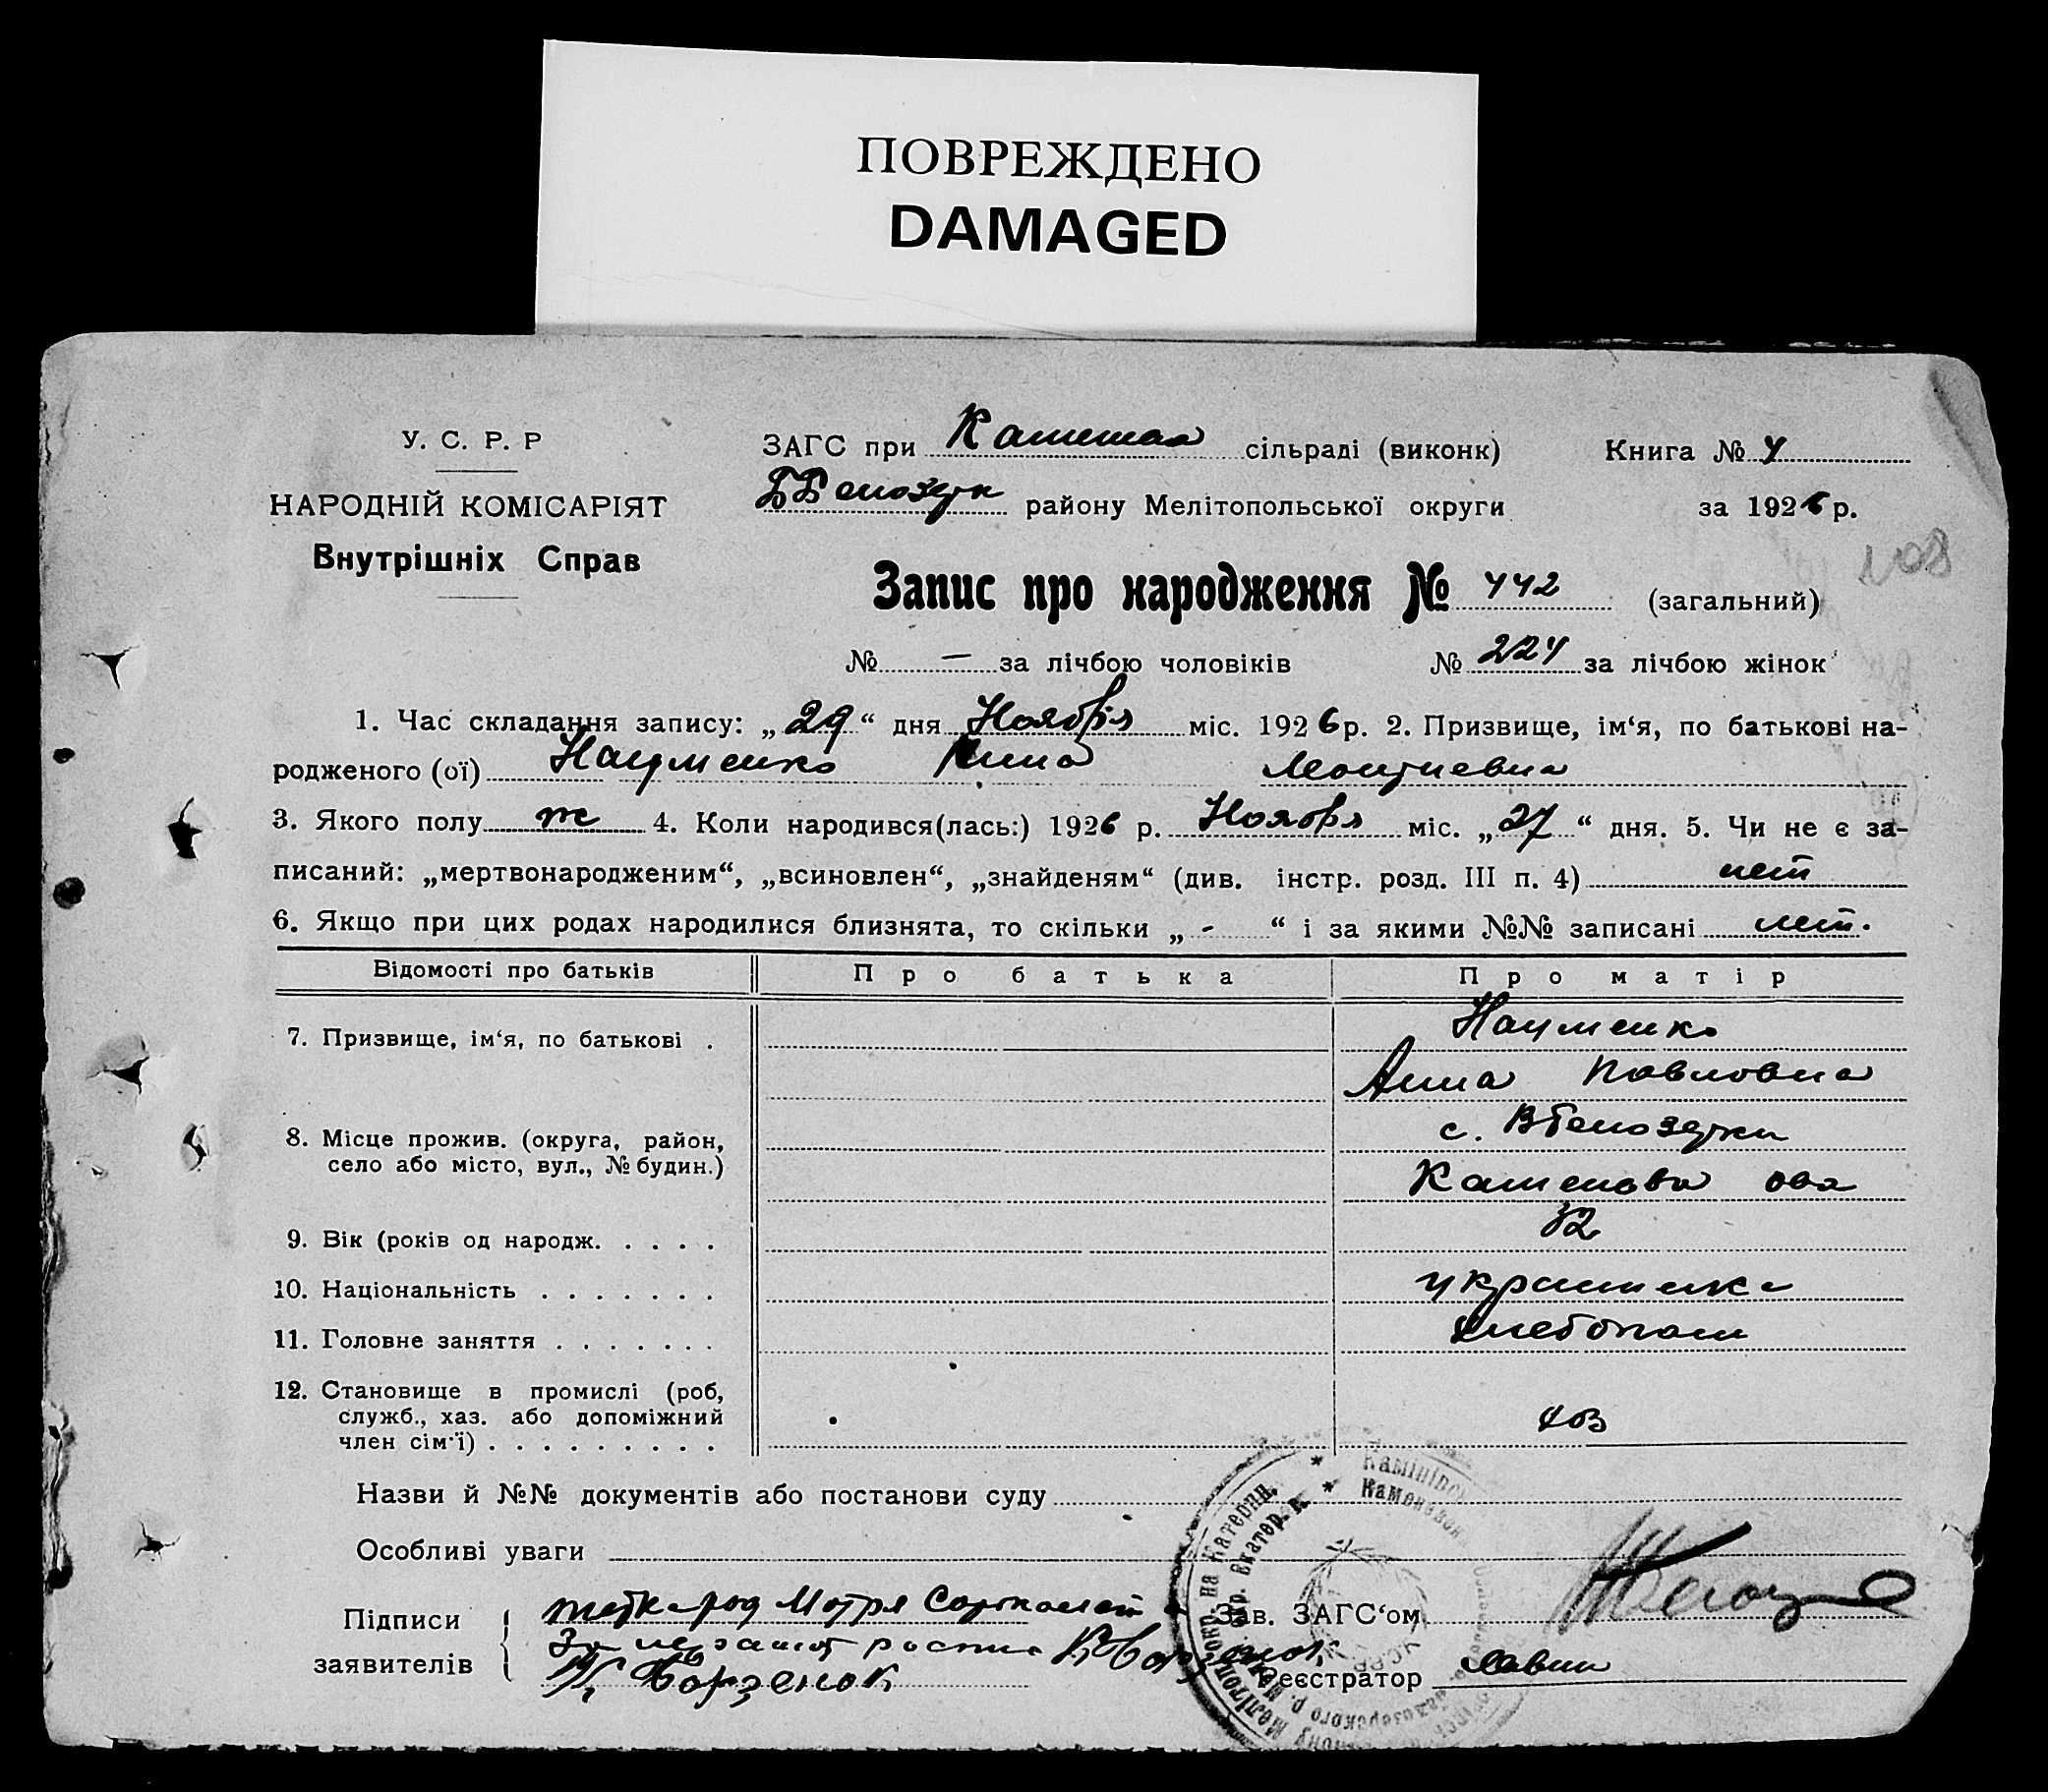 ПОВРЕЖДЕНО
DAMAGED
У. С. Р. Р
НАРОДНІЙ КОМІСАРІЯТ
Внутрішніх Справ
ЗАГС при сільраді (виконк)
району Мелітопольської округи
Книга № 4
за 1926 р.
108
Запис про народження № 442 (загальний)
№ — за лічбою чоловіків № 224 за лічбою жінок
1. Час складання запису: „29“ дня Ноября міс. 1926 р. 2. Призвище, ім‘я, по батькові на-
родженого (ої) Науменко
3. Якого полу ж 4. Коли народився(лась:) 1926 р. Ноября міс. „27“ дня. 5. Чи не є за-
писаний: „мертвонародженим“, „всиновлен“, „знайденям“ (див. інстр. розд. III п. 4) нет
6. Якщо при цих родах народилися близнята, то скільки „ - “ і за якими №№ записані нет.
Відомості про батьків Про батька Про матір
7. Призвище, ім‘я, по батькові . Науменко
Анна Павловна
8. Місце прожив. (округа, район,
село або місто, вул., № будин.)
9. Вік (років од народж. . . . . 32
10. Національність . . . . . . . украинка
11. Головне заняття . . . . . . . хлебопаш
12. Становище в промислі (роб,
служб., хаз. або допоміжний
член сім‘ї) . . . . . . . . . хоз
Назви й №№ документів або постанови суду
Особливі уваги
Підписи Мотря
заявителів
Зав. ЗАГС‘ом
Реєстратор